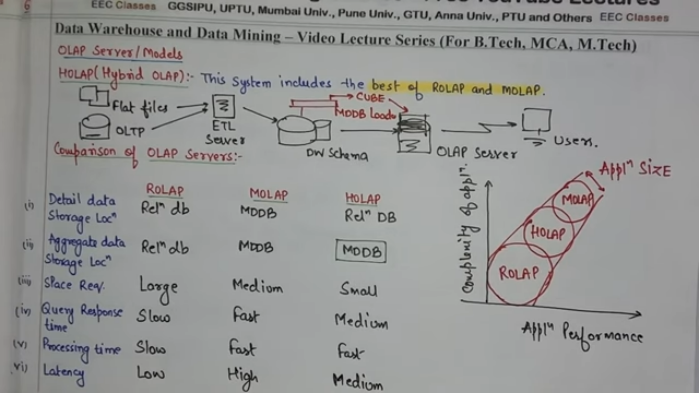 EEC Classes GGSIPU, UPTU, Mumbai Univ., Pune Univ., GTU, Anna Univ., PTU and Others EEC Classes
Data Warehouse and Data Mining – Video Lecture Series (For B.Tech, MCA, M.Tech)
OLAP Server/Models
HOLAP (Hybrid OLAP):- This System includes the best of ROLAP and MOLAP.
CUBE
Flat files
MDDB Load
OLTP
ETL Server
DW Schema
OLAP Server
Users.
Comparison of OLAP Servers:-
ROLAP MOLAP HOLAP
(i) Detail data Storage Locⁿ Relⁿ db MDDB Relⁿ DB
(ii) Aggregate data Storage Locⁿ Relⁿ db MDDB MDDB
(iii) Space Req. Large Medium Small
(iv) Query Response time Slow Fast Medium
(v) Processing time Slow Fast Fast
vi) Latency Low High Medium
Applⁿ SIZE
MOLAP
HOLAP
ROLAP
Complexity of applⁿ.
Applⁿ Performance